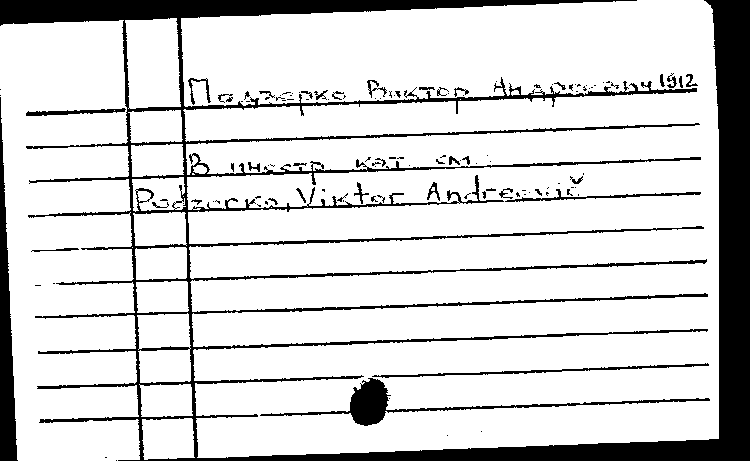 Подзерко, Виктор Андреевич 1912
В иностр. кат. см.:
Podzerko, Viktor Andreevič